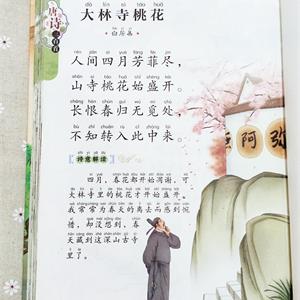 唐诗
dà lín sì táo huā
大林寺桃花
白居易
rén jiān sì yuè fāng fēi jìn
人间四月芳菲尽，
shān sì táo huā shǐ shèng kāi
山寺桃花始盛开。
cháng hèn chūn guī wú mì chù
长恨春归无觅处，
bù zhī zhuǎn rù cǐ zhōng lái
不知转入此中来。
诗意解读
四月，春花都开始凋谢，可
大林寺里的桃花才开始盛开。
我常常为春天的离去而感到惋
惜，却没想到，春
天藏到这深山古寺
里了。
阿
弥